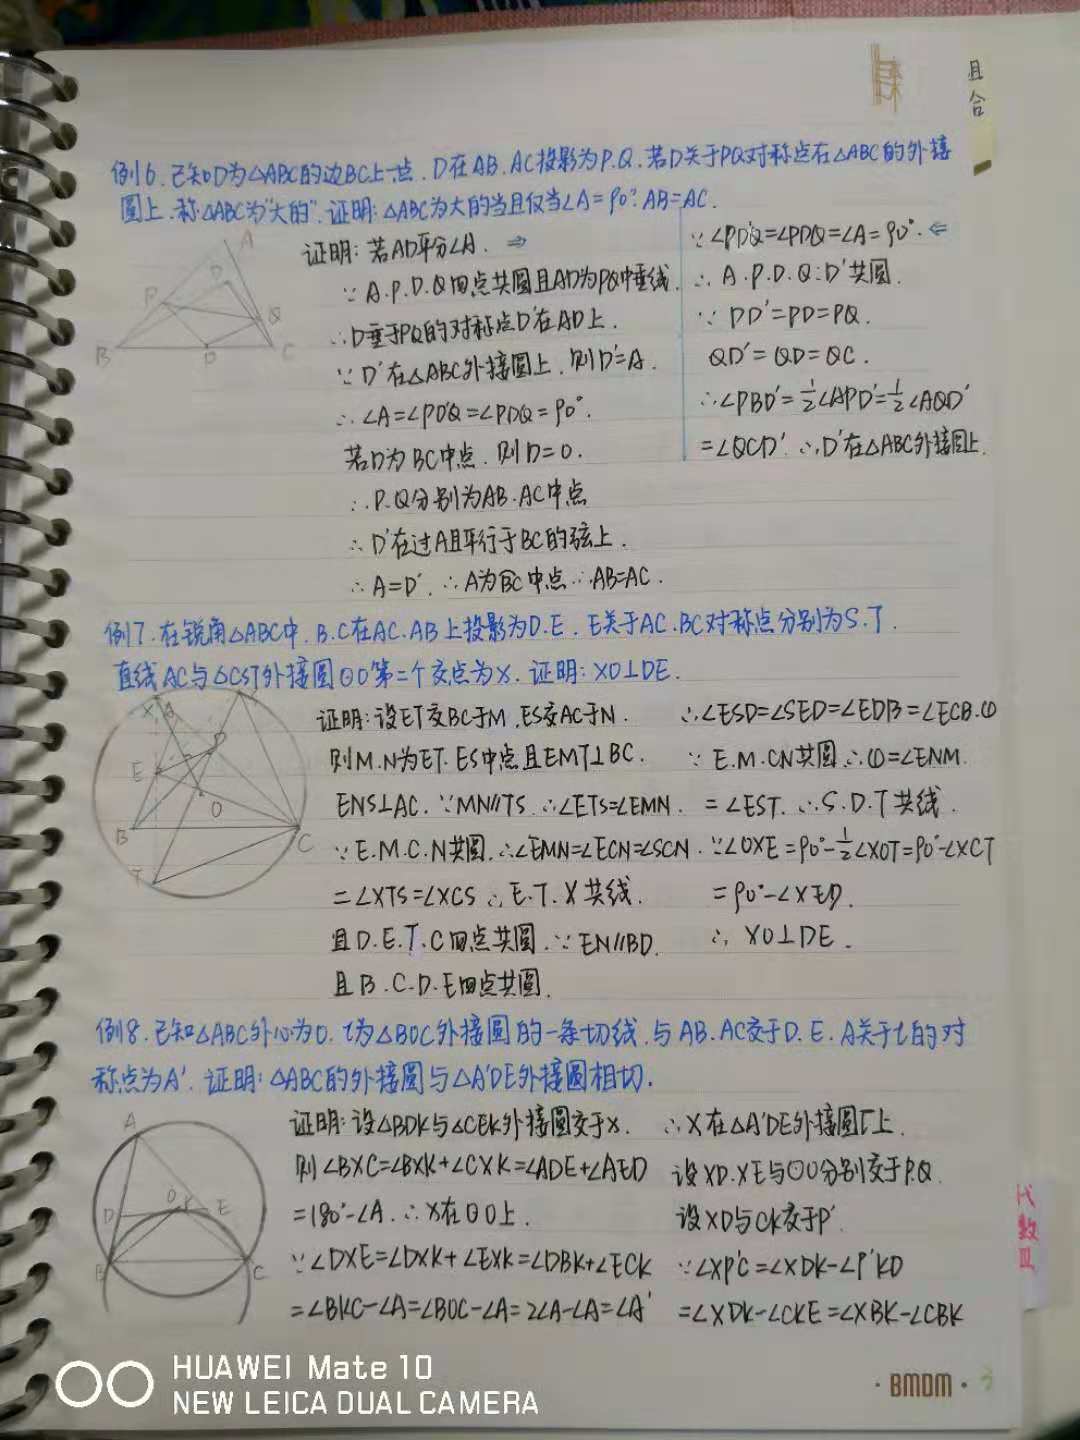 且
合
例6.已知D为△ABC的边BC上一点.D在AB.AC投影为P.Q.若D关于PQ对称点在△ABC的外接
圆上.称△ABC为"大的".证明:△ABC为大的当且仅当∠A=90°.AB=AC.
证明:若AD平分∠A. ⇒
∵A.P.D.Q四点共圆且AD为PQ中垂线.
∴D垂于PQ的对称点D'在AD上.
∵D'在△ABC外接圆上.则D'=A.
∴∠A=∠PD'Q=∠PDQ=90°.
若D为BC中点.则D=O.
∴P.Q分别为AB.AC中点
∴D'在过A且平行于BC的弦上.
∴A=D'.∴A为BC中点∴AB=AC.
∵∠PD'Q=∠PDQ=∠A=90°.⇐
∴A.P.D.Q.D'共圆.
∵PD'=PD=PQ.
QD'=QD=QC.
∴∠PBD'=½∠APD'=½∠AQD'
=∠QCD'.∴D'在△ABC外接圆上.
A
P
D'
Q
B
D
C
例7.在锐角△ABC中.B.C在AC.AB上投影为D.E.E关于AC.BC对称点分别为S.T.
直线AC与△CST外接圆⊙O第二个交点为X.证明:XO⊥DE.
证明:设ET交BC于M.ES交AC于N.
则M.N为ET.ES中点且EMT⊥BC.
ENS⊥AC.∵MN∥TS.∴∠ETS=∠EMN.
∵E.M.C.N共圆.∴∠EMN=∠ECN=∠SCN.
=∠XTS=∠XCS∴E.T.X共线.
且D.E.T.C四点共圆.∵EN∥BD.
且B.C.D.E四点共圆.
∴∠ESD=∠SED=∠EDB=∠ECB.①
∵E.M.CN共圆∴①=∠ENM.
=∠EST.∴S.D.T共线.
∵∠OXE=90°-½∠XOT=90°-∠XCT
=90°-∠XED.
∴XO⊥DE.
X
A
D
E
O
B
C
T
例8.已知△ABC外心为O.l为△BOC外接圆的一条切线.与AB.AC交于D.E.A关于l的对
称点为A'.证明:△ABC的外接圆与△A'DE外接圆相切.
证明:设△BDK与△CEK外接圆交于X.
则∠BXC=∠BXK+∠CXK=∠ADE+∠AED
=180°-∠A.∴X在⊙O上.
∵∠DXE=∠DXK+∠EXK=∠DBK+∠ECK
=∠BKC-∠A=∠BOC-∠A=2∠A-∠A=∠A'
∴X在△A'DE外接圆上.
设XD.XE与⊙O分别交于P.Q.
设XD与CK交于P'.
∵∠XP'C=∠XDK-∠P'KD
=∠XDK-∠CKE=∠XBK-∠CBK
A
O
K
D
E
B
C
代
数
BMDM
HUAWEI Mate 10
NEW LEICA DUAL CAMERA